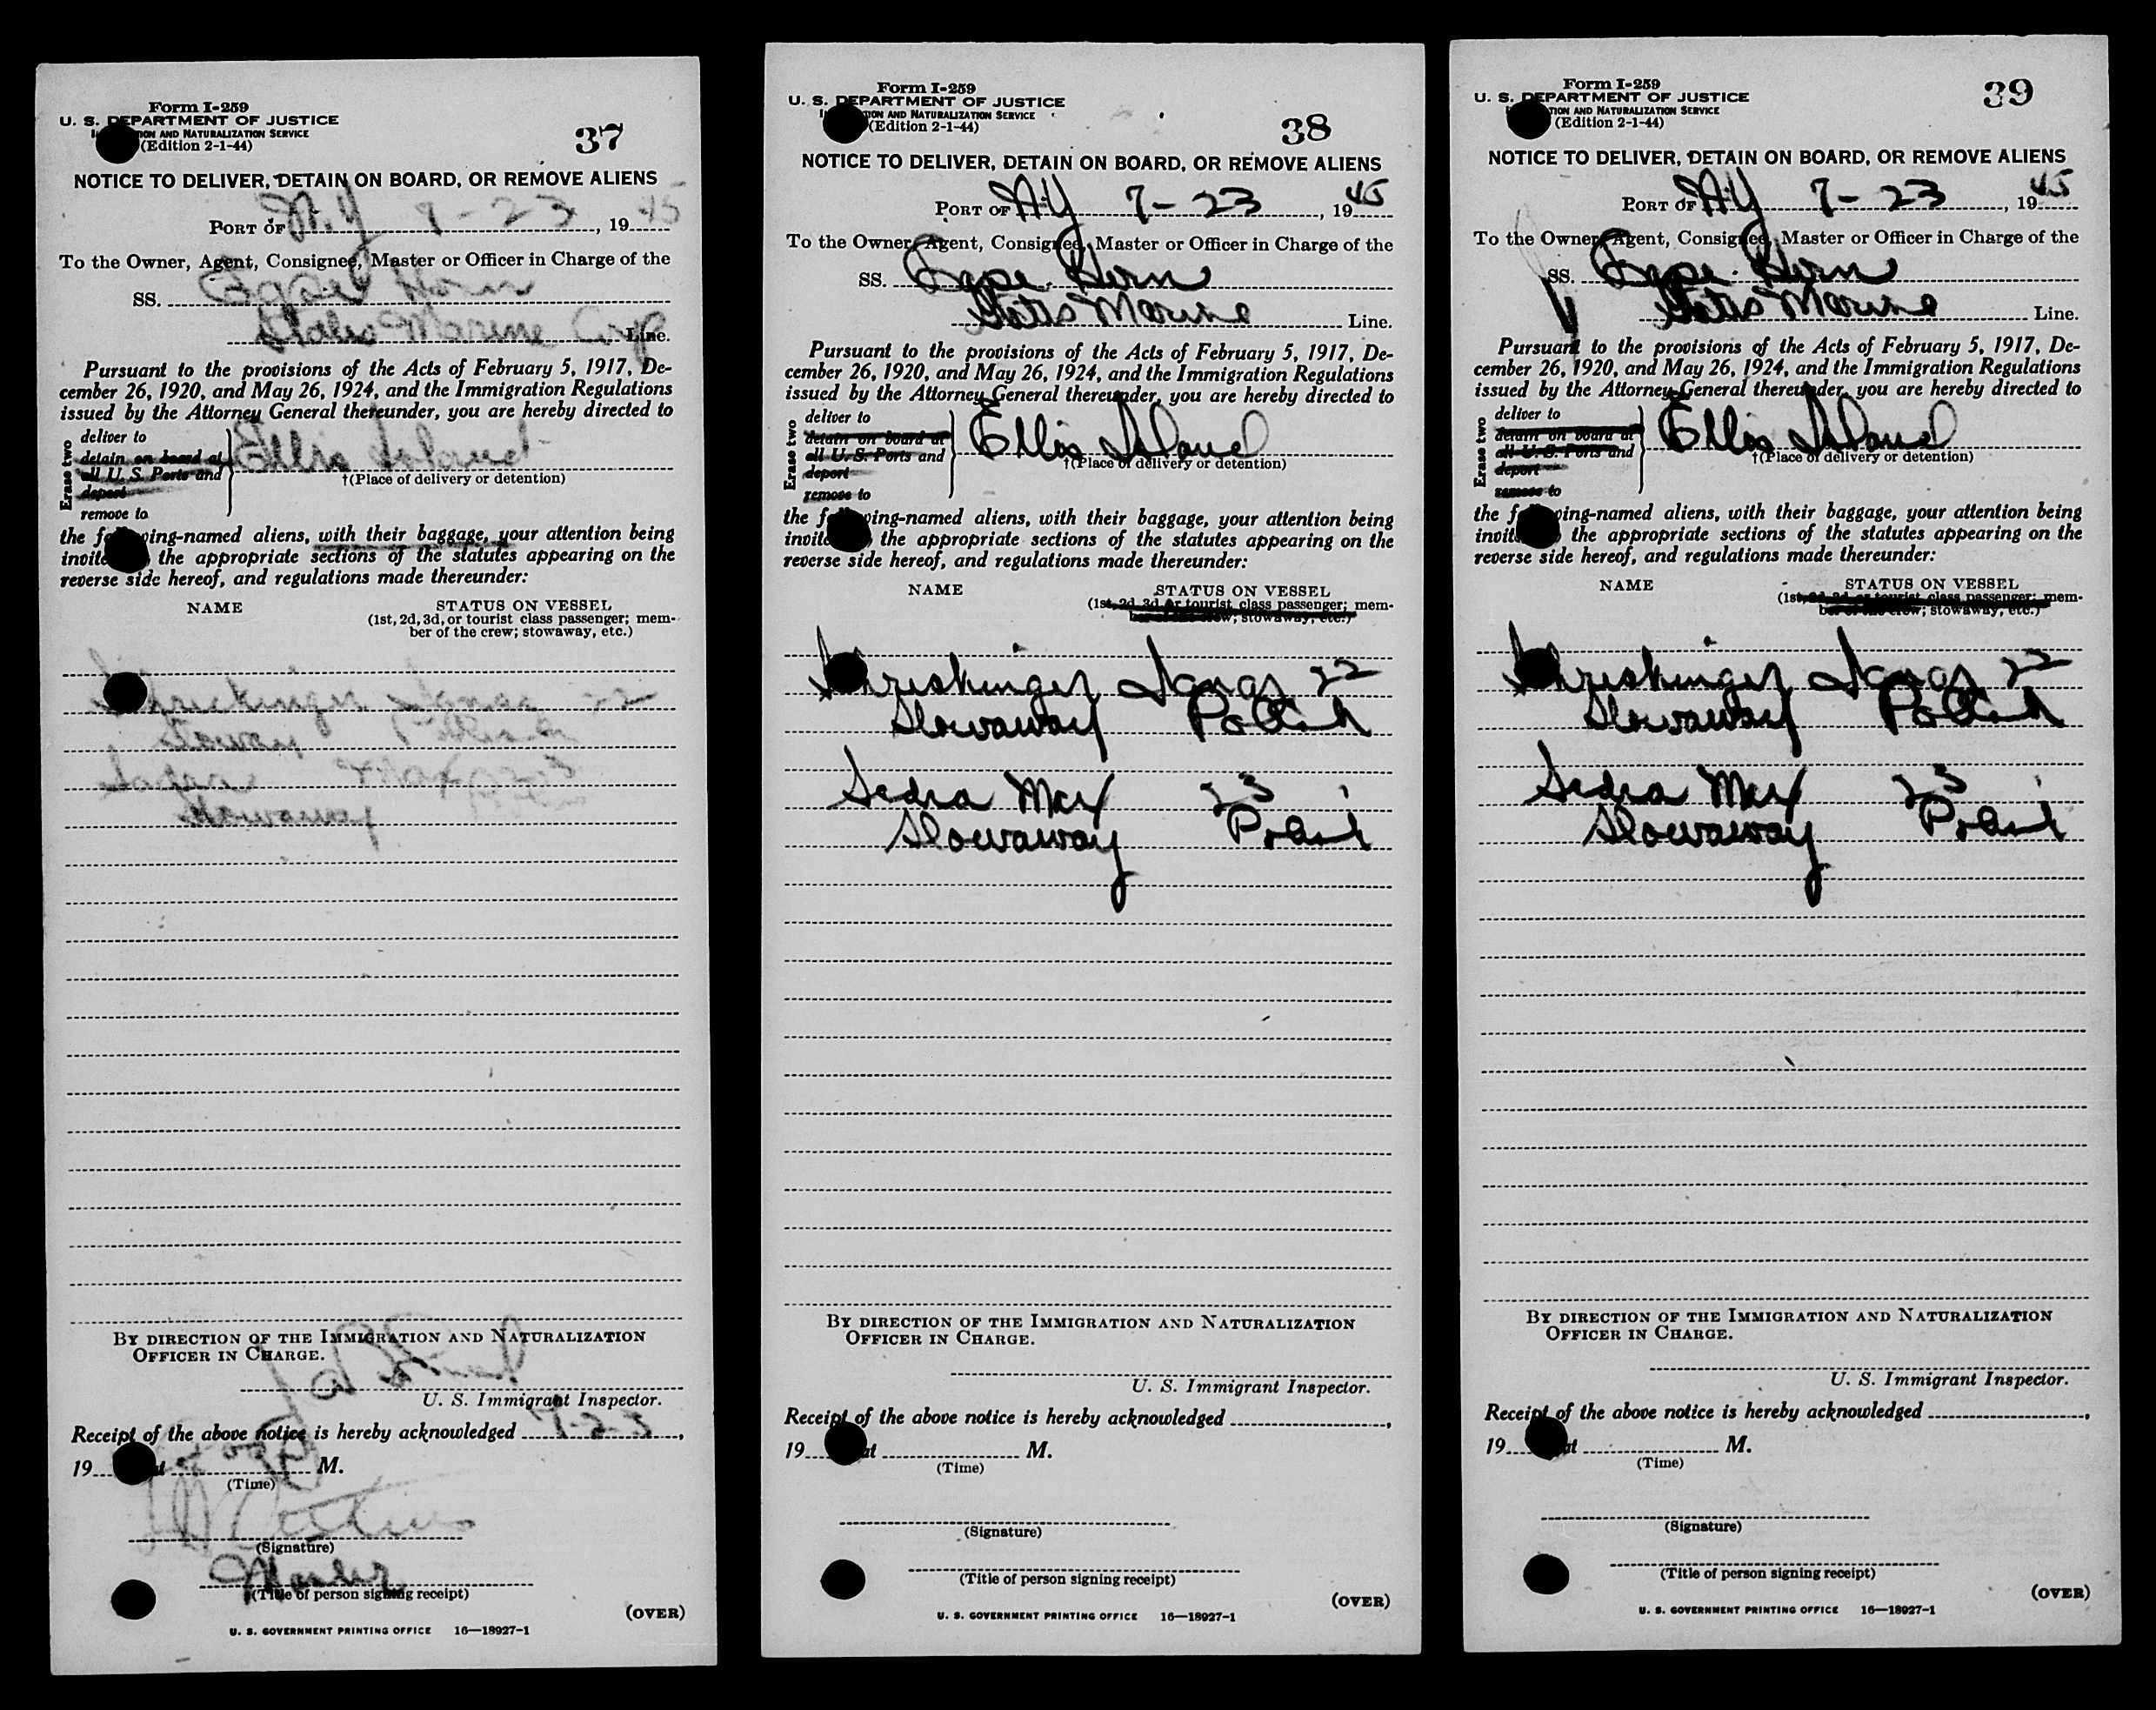 Form I-259
U. S. DEPARTMENT OF JUSTICE
TION AND NATURALIZATION SERVICE
(Edition 2-1-44)
37
NOTICE TO DELIVER, DETAIN ON BOARD, OR REMOVE ALIENS
PORT OF N.Y 7-23, 1945
To the Owner, Agent, Consignee, Master or Officer in Charge of the
SS. Cape Horn
States Marine Corp Line.
Pursuant to the provisions of the Acts of February 5, 1917, De-
cember 26, 1920, and May 26, 1924, and the Immigration Regulations
issued by the Attorney General thereunder, you are hereby directed to
Erase two
deliver to
detain on board at
all U. S. Ports and
deport
remove to
Ellis Island
†(Place of delivery or detention)
the following-named aliens, with their baggage, your attention being
invited the appropriate sections of the statutes appearing on the
reverse side hereof, and regulations made thereunder:
NAME STATUS ON VESSEL
(1st, 2d, 3d, or tourist class passenger; mem-
ber of the crew; stowaway, etc.)
22
Max 23
Stowaway
BY DIRECTION OF THE IMMIGRATION AND NATURALIZATION
OFFICER IN CHARGE.
U. S. Immigrant Inspector.
Receipt of the above notice is hereby acknowledged 7-23,
19 at M.
(Time)
(Signature)
Master
(Title of person signing receipt)
(OVER)
U. S. GOVERNMENT PRINTING OFFICE 16—18927-1
Form I-259
U. S. DEPARTMENT OF JUSTICE
TION AND NATURALIZATION SERVICE
(Edition 2-1-44)
38
NOTICE TO DELIVER, DETAIN ON BOARD, OR REMOVE ALIENS
PORT OF N.Y 7-23, 1945
To the Owner, Agent, Consignee, Master or Officer in Charge of the
SS. Cape Horn
States Marine Line.
Pursuant to the provisions of the Acts of February 5, 1917, De-
cember 26, 1920, and May 26, 1924, and the Immigration Regulations
issued by the Attorney General thereunder, you are hereby directed to
Erase two
deliver to
detain on board at
all U. S. Ports and
deport
remove to
Ellis Island
†(Place of delivery or detention)
the following-named aliens, with their baggage, your attention being
invited the appropriate sections of the statutes appearing on the
reverse side hereof, and regulations made thereunder:
NAME STATUS ON VESSEL
(1st, 2d, 3d, or tourist class passenger; mem-
ber of the crew; stowaway, etc.)
22
Stowaway Polish
Sedra Max 23
Stowaway Polish
BY DIRECTION OF THE IMMIGRATION AND NATURALIZATION
OFFICER IN CHARGE.
U. S. Immigrant Inspector.
Receipt of the above notice is hereby acknowledged ,
19 at M.
(Time)
(Signature)
(Title of person signing receipt)
(OVER)
U. S. GOVERNMENT PRINTING OFFICE 16—18927-1
Form I-259
U. S. DEPARTMENT OF JUSTICE
TION AND NATURALIZATION SERVICE
(Edition 2-1-44)
39
NOTICE TO DELIVER, DETAIN ON BOARD, OR REMOVE ALIENS
PORT OF N.Y 7-23, 1945
To the Owner, Agent, Consignee, Master or Officer in Charge of the
SS. Cape Horn
States Marine Line.
Pursuant to the provisions of the Acts of February 5, 1917, De-
cember 26, 1920, and May 26, 1924, and the Immigration Regulations
issued by the Attorney General thereunder, you are hereby directed to
Erase two
deliver to
detain on board at
all U. S. Ports and
deport
remove to
Ellis Island
†(Place of delivery or detention)
the following-named aliens, with their baggage, your attention being
invited the appropriate sections of the statutes appearing on the
reverse side hereof, and regulations made thereunder:
NAME STATUS ON VESSEL
(1st, 2d, 3d, or tourist class passenger; mem-
ber of the crew; stowaway, etc.)
22
Stowaway Polish
Sedra Max 23
Stowaway Polish
BY DIRECTION OF THE IMMIGRATION AND NATURALIZATION
OFFICER IN CHARGE.
U. S. Immigrant Inspector.
Receipt of the above notice is hereby acknowledged ,
19 at M.
(Time)
(Signature)
(Title of person signing receipt)
(OVER)
U. S. GOVERNMENT PRINTING OFFICE 16—18927-1